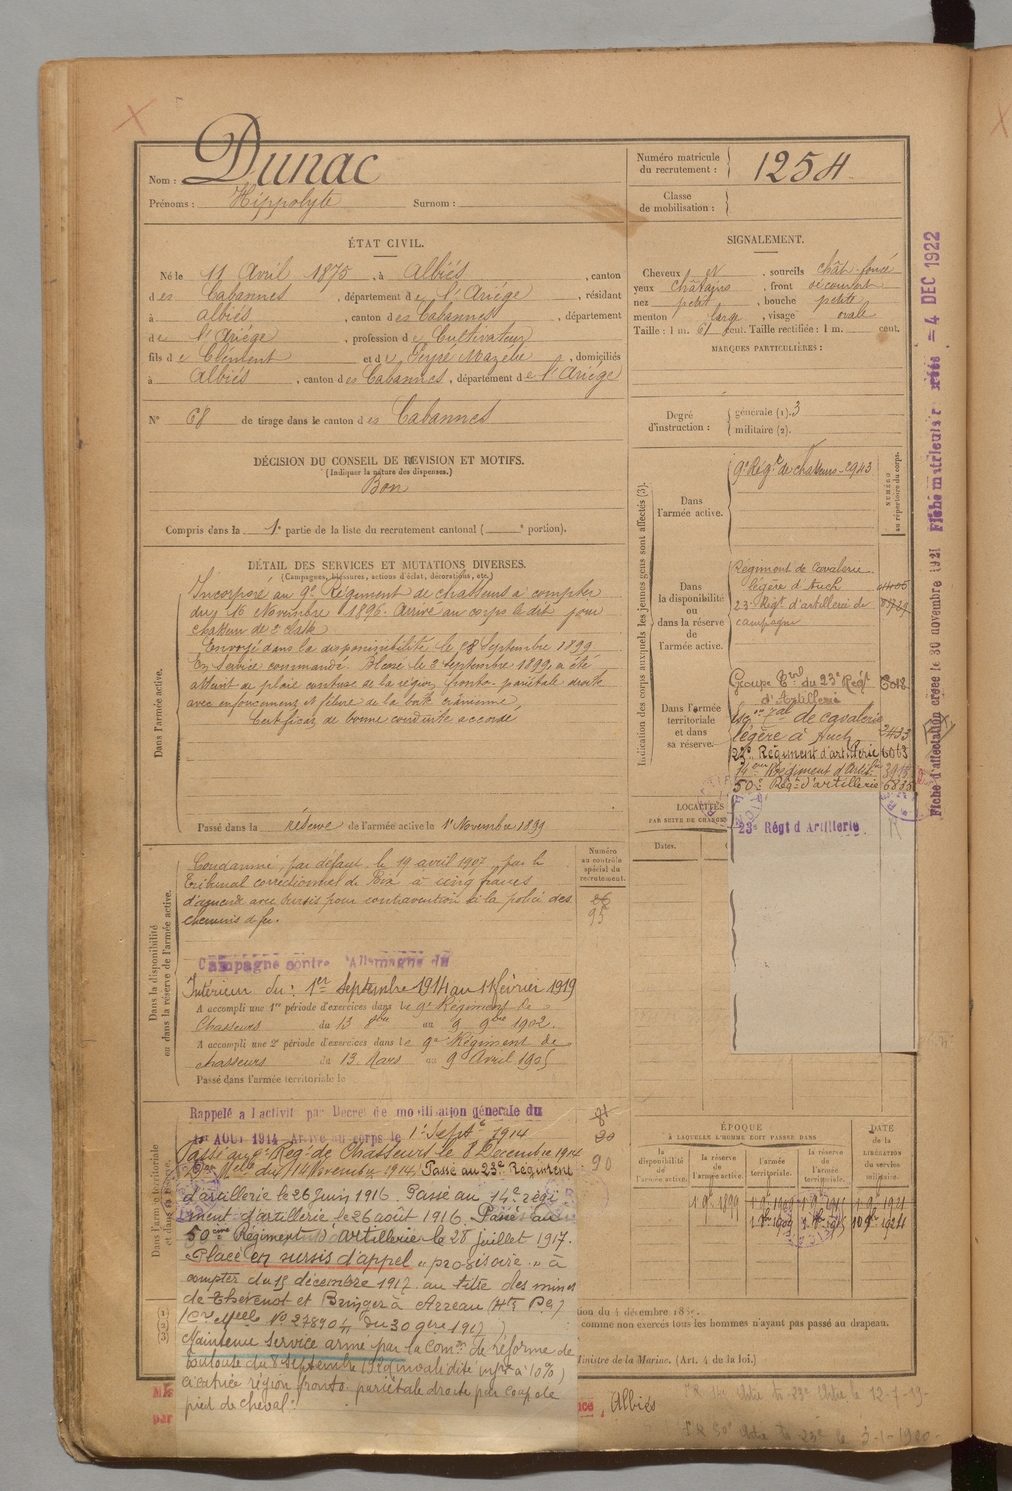 Nom : Dunac
Prénoms : Hippolyte Surnom :
Numéro matricule du recrutement : 1254
Classe de mobilisation :
ÉTAT CIVIL.
Né le 11 Avril 1875, à Albiés, canton
des Cabannes, département de l'Ariége, résidant
à Albiés, canton des Cabannes, département
de l'Ariége, profession de Cultivateur
fils de Clément et de Mazelie, domiciliés
à Albiés, canton des Cabannes, département de l'Ariége
N° 68 de tirage dans le canton des Cabannes
DÉCISION DU CONSEIL DE REVISION ET MOTIFS.
(Indiquer la nature des dispenses.)
Bon
Compris dans la 1e partie de la liste du recrutement cantonal ( e portion).
SIGNALEMENT.
Cheveux N, sourcils chât. foncé
yeux châtains, front découvert
nez petit, bouche petite
menton large, visage ovale
Taille : 1 m. 61 cent. Taille rectifiée : 1 m. cent.
MARQUES PARTICULIÈRES :
Degré d'instruction : générale (1). 3
militaire (2).
DÉTAIL DES SERVICES ET MUTATIONS DIVERSES.
(Campagnes, blessures, actions d'éclat, décorations, etc.)
Dans l'armée active.
Incorporé au 9e Régiment de chasseurs à compter
du 16 Novembre 1896. Arrivé au corps le dit jour
chasseur de 2e classe
Envoyé dans la disponibilité le 28 Septembre 1899
En Service commandé. Blessé le 2 septembre 1899, a été
atteint de plaie contuse de la région fronto-pariétale droite
avec enfoncement et fêlure de la boîte crânienne,
Certificat de bonne conduite accordé
Passé dans la réserve de l'armée active le 1er Novembre 1899
Indication des corps auxquels les jeunes gens sont affectés (3).
NUMÉRO au répertoire du corps.
Dans l'armée active.
9e Régt de chasseurs 2943
Dans la disponibilité ou dans la réserve de l'armée active.
Régiment de Cavalerie
légère d'Auch
23e Régt d'artillerie de
campagne
Dans l'armée territoriale et dans sa réserve.
Groupe Trial du 23e Régt
d'Artillerie
Esqon Tal de cavalerie
légère à Auch
23e Régiment d'artillerie 6063
14eme Régiment d'Artillie
50e Régt d'artillerie
LOCALITÉS
PAR SUITE DE CHANGE
Dates.
23e Régt d Artillerie
Fiche d'affectation créée le 30 novembre 1921 Fiche matriculaire créée = 4 DEC 1922
Dans la disponibilité ou dans la réserve de l'armée active.
Numéro au contrôle spécial du recrutement.
95
Condamné, par défaut le 19 avril 1907 par le
Tribunal correctionnel de Foix à cinq francs
d'amende avec sursis pour contravention à la police des
chemins de fer.
Campagne contre l'Allemagne du
Intérieur du : 1er Septembre 1914 au 11 février 1919
A accompli une 1re période d'exercices dans le 9e Régiment de
Chasseurs du 13 8bre au 9 9bre 1902.
A accompli une 2e période d'exercices dans le 9e Régiment de
chasseurs du 13 Mars au 9 Avril 1905
Passé dans l'armée territoriale le
Dans l'armée territoriale
Rappelé à l'activité par Décret de mobilisation générale du
1er AOUT 1914 Arrivé au corps le 1er Septbe 1914
Passé au 9e Reg. de Chasseurs le 8 Décembre 1914
du 14 Novembre 1914. Passé au 23e Régiment
d'artillerie le 26 Juin 1916. Passé au 14e régi
ment d'artillerie le 26 août 1916. Passé au
50eme Régiment d'artillerie le 28 juillet 1917.
Placé en sursis d'appel "provisoire" à
compter du 15 décembre 1917 au titre des mines
de Thevenot et Bringer à Arreau (Htes Pées)
(Cre Melle No 278904 du 30 9bre 1917)
Maintenu Service armé par la Comon de réforme de
Toulouse du 8 septembre invalidité infre à 10%)
cicatrice région fronto-pariétale droite par coup de
pied de cheval.
90
ÉPOQUE
À LAQUELLE L'HOMME DOIT PASSER DANS
la disponibilité de l'armée active.
la réserve de l'armée active.
l'armée territoriale.
la réserve de l'armée territoriale.
DATE de la LIBÉRATION du service militaire.
1 9bre 1899
(1)
(2)
(3)
comme non exercés tous les hommes n'ayant pas passé au drapeau.
Ministre de la Marine. (Art. 4 de la loi.)
par
Albiés